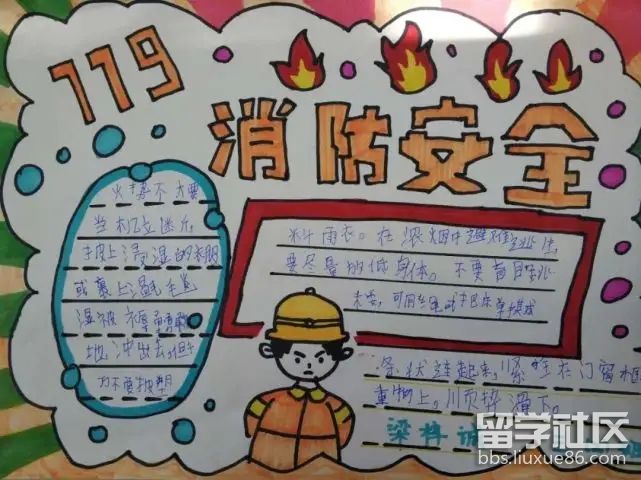 119
消防安全
火势不大要
当机立断,
披上浸湿的衣服
或裹上湿毛毯
湿被褥勇敢
地冲出去,但千
万不要披塑
料雨衣。在浓烟中避难逃生,
要尽量的低身体。不要盲目
条状连起来,紧栓在门窗框
重物上。顺滑下。
梁梓诚
留学社区
bbs.liuxue86.com